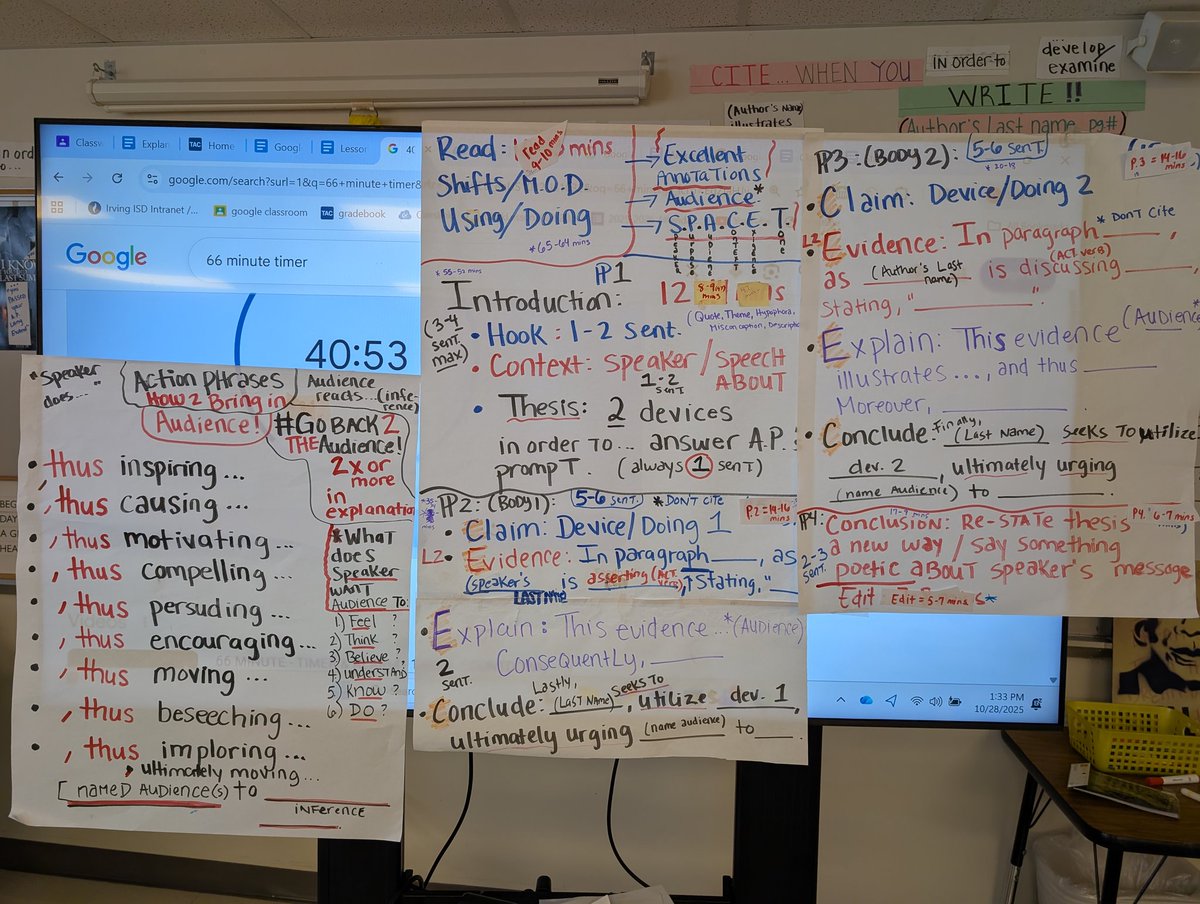 CITE... WHEN YOU
in order to
develop/
examine
WRITE !!
(Author's Name)
illustrates
(Author's Last name, pg#)
Classw
Explan
TAC Home
Googl
Lessor
G 40
google.com/search?surl=1&q=66+minute+timer&
Irving ISD Intranet /...
google classroom
TAC gradebook
Google
66 minute timer
40:53
1:33 PM
10/28/2025
*Speaker
does...
Action Phrases
How 2 Bring in
Audience!
Audience
reacts...(infe-
rence)
#Go BACK 2
THE Audience!
2x or
more
in
explanation
• thus inspiring...
• , thus causing...
• , thus motivating...
• , thus compelling...
• , thus persuding...
• , thus encouraging...
• , thus moving...
• , thus beseeching...
• , thus imploring...
, ultimately moving...
[named Audience(s) to
inference
*What
does
Speaker
want
Audience to:
1) Feel?
2) Think?
3) Believe?
4) understand
5) Know?
6) DO?
Read: read 9-10 mins mins
Shifts/M.O.D.
Using/Doing
*65-64 mins
→ Excellent
Annotations
→ Audience*
→ S.P.A.C.E.T.
* 55-52 mins
PP1
Introduction:
12
8-9
mins
(3-4
sent.
max)
(Quote, Theme, Hypophora,
Misconception, Descripti
• Hook: 1-2 sent.
• Context: speaker/speech
ABOUT
1-2
sent
• Thesis: 2 devices
in order to... answer A.P.
prompt. (always 1 sent)
PP2: (Body 1): 5-6 sent. *DON'T CITE
P.2 = 14-16
mins
• Claim: Device/Doing 1
L2 • Evidence: In paragraph ___, as
(speaker's LAST NAME) is asserting (ACT. verb), stating, "
• Explain: This evidence...*(Audience)
2
sent.
Consequently, ___
• Conclude: Lastly, (Last Name) seeks to utilize dev. 1,
ultimately urging (name audience) to ___
PP3: (Body 2): 5-6 sent.
P.3 = 14-16
mins
• Claim: Device/Doing 2
* Don't Cite
L2 • Evidence: In paragraph ___,
as (Author's Last name) is discussing (ACT. verb) ___,
stating, "___".
• Explain: This evidence (Audience*
illustrates ..., and thus ___
Moreover, ___
• Conclude: Finally, (Last Name) seeks to utilize
dev. 2, ultimately urging
(name Audience) to ___.
PP4: Conclusion: Re-state thesis
P4. 6-7 mins
2-3
sent.
a new way / say something
poetic about speaker's message
Edit Edit = 5-7 mins